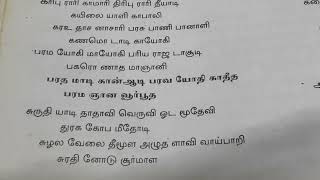 கரிபு ராரி காமாரி திரிபு ராரி தீயாடி
கயிலை யாளி காபாலி
கரஉ தாச னாசாரி பரசு பாணி பானாளி
கணமொ டாடி காயோகி
பரம யோகி மாயோகி பரிய ராஜ டாசூடி
பகரொ ணாத மாஞானி
பரத மாடி கான்ஆடி பரவ யோதி காதீத
பரம ஞான வூர்பூத
சுருதி யாடி தாதாவி வெருவி ஓட மூதேவி
துரக கோப மீதோடி
சுழல வேலை தீமூள அழுத ளாவி வாய்பாறி
சுரதி னோடு சூர்மாள